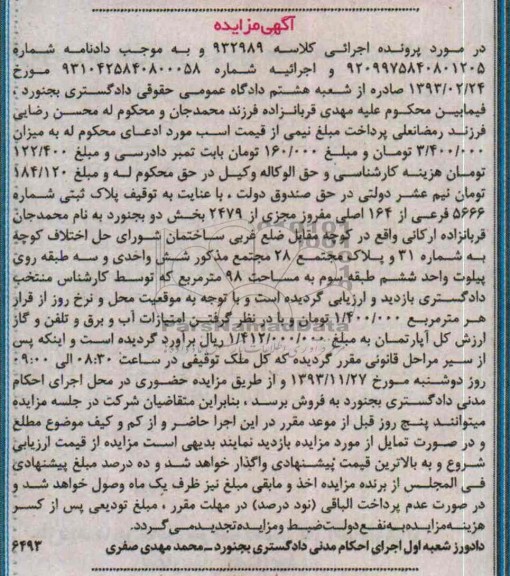 آگهی مزایده
در مورد پرونده اجرائی کلاسه ۹۳۲۹۸۹ و به موجب دادنامه شماره
۹۲۰۹۹۷۵۸۴۰۸۰۱۲۰۵ و اجرائیه شماره ۹۳۱۰۴۲۵۸۴۰۸۰۰۰۵۸ مورخ
۱۳۹۳/۰۲/۲۴ صادره از شعبه هشتم دادگاه عمومی حقوقی دادگستری بجنورد ،
فیمابین محکوم علیه مهدی قربانزاده فرزند محمدجان و محکوم له محسن رضایی
فرزند رمضانعلی پرداخت مبلغ نیمی از قیمت اسب مورد ادعای محکوم له به میزان
۳/۴۰۰/۰۰۰ تومان و مبلغ ۱۶۰/۰۰۰ تومان بابت تمبر دادرسی و مبلغ ۱۲۲/۴۰۰
تومان هزینه کارشناسی و حق الوکاله وکیل در حق محکوم له و مبلغ ۱۸۴/۱۲۰
تومان نیم عشر دولتی در حق صندوق دولت ، با عنایت به توقیف پلاک ثبتی شماره
۵۶۶۶ فرعی از ۱۶۴ اصلی مفروز مجزی از ۲۴۷۹ بخش دو بجنورد به نام محمدجان
قربانزاده ارکانی واقع در کوچه مقابل ضلع غربی ساختمان شورای حل اختلاف کوچه
به شماره ۳۱ و پلاک مجتمع ۲۸ مجتمع مذکور شش واحدی و سه طبقه روی
پیلوت واحد ششم طبقه سوم به مساحت ۹۸ مترمربع که توسط کارشناس منتخب
دادگستری بازدید و ارزیابی گردیده است و با توجه به موقعیت محل و نرخ روز از قرار
هر مترمربع ۱/۴۰۰/۰۰۰ تومان و با در نظر گرفتن امتیازات آب و برق و تلفن و گاز
ارزش کل آپارتمان به مبلغ ۱/۴۱۲/۰۰۰/۰۰۰ ریال برآورد گردیده است و اینکه پس
از سیر مراحل قانونی مقرر گردیده که کل ملک توقیفی در ساعت ۰۸:۳۰ الی ۰۹:۰۰
روز دوشنبه مورخ ۱۳۹۳/۱۱/۲۷ و از طریق مزایده حضوری در محل اجرای احکام
مدنی دادگستری بجنورد به فروش برسد ، بنابراین متقاضیان شرکت در جلسه مزایده
میتوانند پنج روز قبل از موعد مقرر در این اجرا حاضر و از کم و کیف موضوع مطلع
و در صورت تمایل از مورد مزایده بازدید نمایند بدیهی است مزایده از قیمت ارزیابی
شروع و به بالاترین قیمت پیشنهادی واگذار خواهد شد و ده درصد مبلغ پیشنهادی
فی المجلس از برنده مزایده اخذ و مابقی مبلغ نیز ظرف یک ماه وصول خواهد شد و
در صورت عدم پرداخت الباقی (نود درصد) در مهلت مقرر ، مبلغ تودیعی پس از کسر
هزینه مزایده به نفع دولت ضبط و مزایده تجدید می گردد.
دادورز شعبه اول اجرای احکام مدنی دادگستری بجنورد ـ محمد مهدی صفری ۶۴۹۳